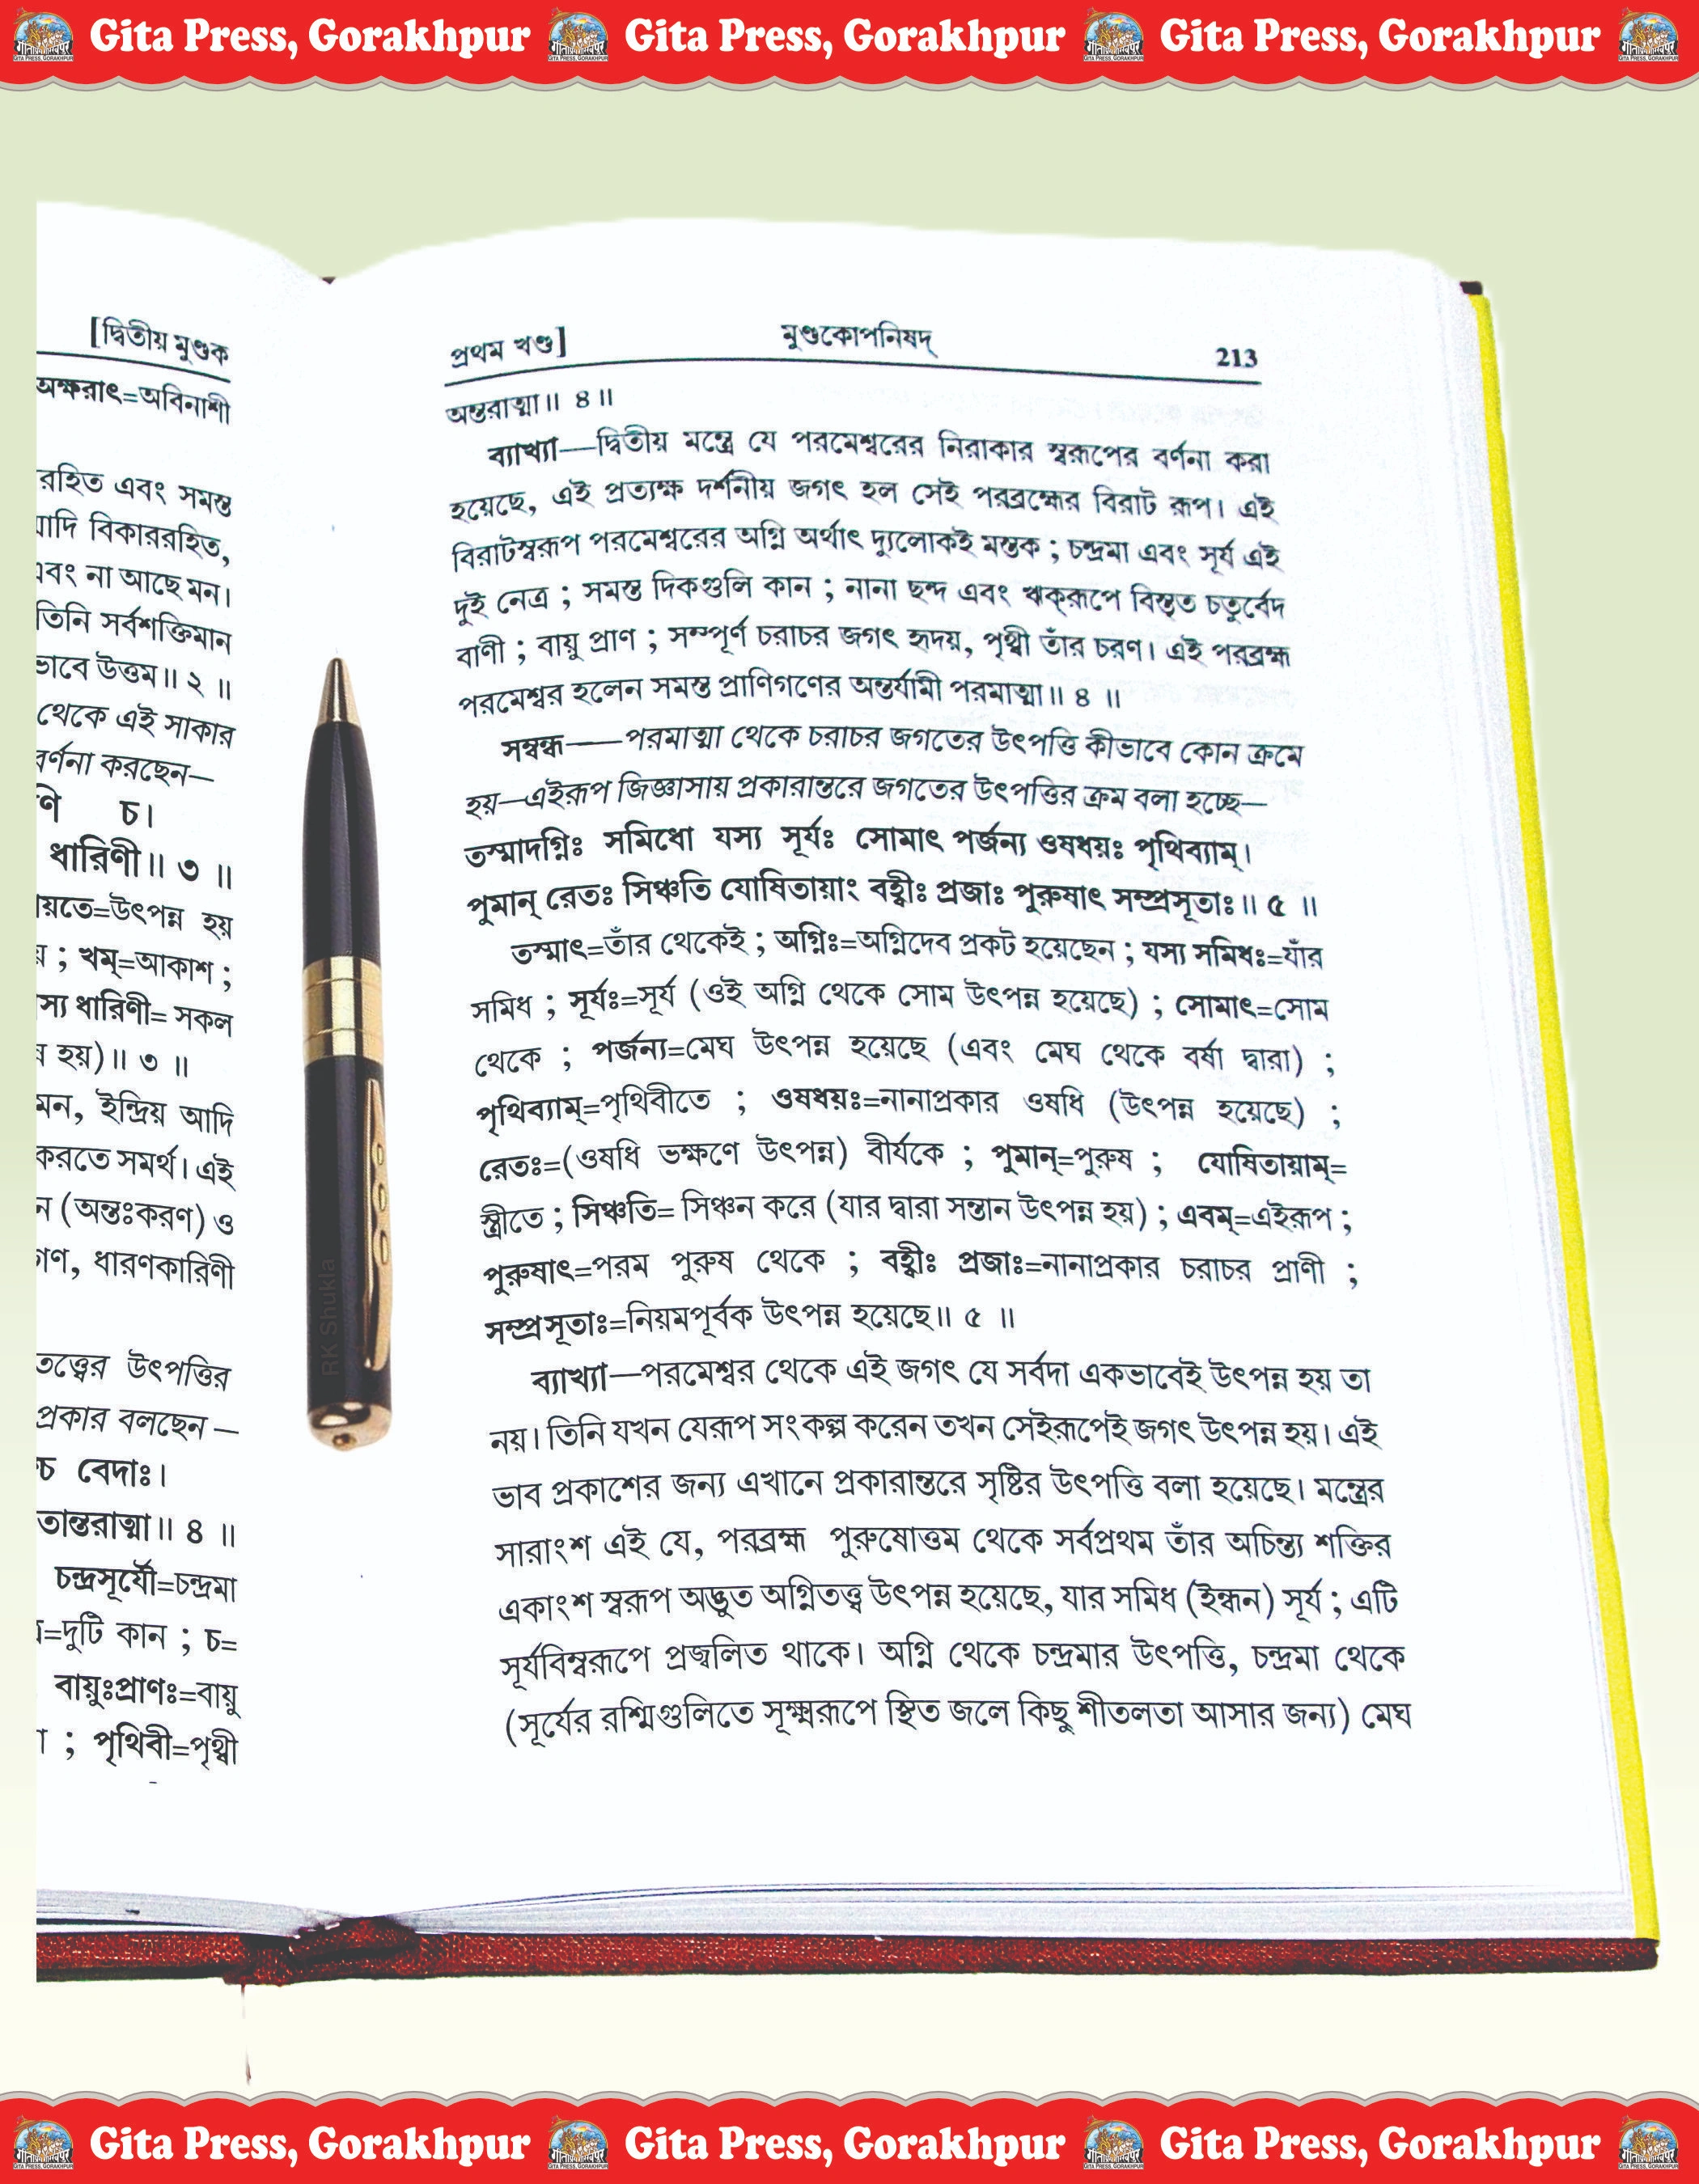 Gita Press, Gorakhpur Gita Press, Gorakhpur Gita Press, Gorakhpur
[দ্বিতীয় মুণ্ডক
অক্ষরাৎ=অবিনাশী
রহিত এবং সমস্ত
বিকাররহিত,
না আছে মন।
তিনি সর্বশক্তিমান
ভাবে উত্তম॥ ২ ॥
থেকে এই সাকার
বর্ণনা করছেন—
চ।
ধারিণী॥ ৩ ॥
য়তে=উৎপন্ন হয়
; খম্=আকাশ ;
স্য ধারিণী= সকল
হয়)॥ ৩ ॥
মন, ইন্দ্রিয় আদি
করতে সমর্থ। এই
ন (অন্তঃকরণ) ও
ধারণকারিণী
তত্ত্বের উৎপত্তির
প্রকার বলছেন —
চ বেদাঃ।
তান্তরাত্মা॥ ৪ ॥
চন্দ্রসূর্যৌ=চন্দ্রমা
=দুটি কান ; চ=
বায়ুঃপ্রাণঃ=বায়ু
; পৃথিবী=পৃথ্বী
RK Shukla
প্রথম খণ্ড] মুণ্ডকোপনিষদ্ 213
অন্তরাত্মা॥ ৪॥
ব্যাখ্যা—দ্বিতীয় মন্ত্রে যে পরমেশ্বরের নিরাকার স্বরূপের বর্ণনা করা
হয়েছে, এই প্রত্যক্ষ দর্শনীয় জগৎ হল সেই পরব্রহ্মের বিরাট রূপ। এই
বিরাটস্বরূপ পরমেশ্বরের অগ্নি অর্থাৎ দ্যুলোকই মস্তক ; চন্দ্রমা এবং সূর্য এই
দুই নেত্র ; সমস্ত দিকগুলি কান ; নানা ছন্দ এবং ঋক্‌রূপে বিস্তৃত চতুর্বেদ
বাণী ; বায়ু প্রাণ ; সম্পূর্ণ চরাচর জগৎ হৃদয়, পৃথ্বী তাঁর চরণ। এই পরব্রহ্ম
পরমেশ্বর হলেন সমস্ত প্রাণিগণের অন্তর্যামী পরমাত্মা॥ ৪ ॥
সম্বন্ধ——পরমাত্মা থেকে চরাচর জগতের উৎপত্তি কীভাবে কোন ক্রমে
হয়—এইরূপ জিজ্ঞাসায় প্রকারান্তরে জগতের উৎপত্তির ক্রম বলা হচ্ছে—
তস্মাদগ্নিঃ সমিধো যস্য সূর্যঃ সোমাৎ পর্জন্য ওষধয়ঃ পৃথিব্যাম্।
পুমান্ রেতঃ সিঞ্চতি যোষিতায়াং বহ্বীঃ প্রজাঃ পুরুষাৎ সম্প্রসূতাঃ॥ ৫ ॥
তস্মাৎ=তাঁর থেকেই ; অগ্নিঃ=অগ্নিদেব প্রকট হয়েছেন ; যস্য সমিধঃ=যাঁর
সমিধ ; সূর্যঃ=সূর্য (ওই অগ্নি থেকে সোম উৎপন্ন হয়েছে) ; সোমাৎ=সোম
থেকে ; পর্জন্য=মেঘ উৎপন্ন হয়েছে (এবং মেঘ থেকে বর্ষা দ্বারা) ;
পৃথিব্যাম্=পৃথিবীতে ; ওষধয়ঃ=নানাপ্রকার ওষধি (উৎপন্ন হয়েছে) ;
রেতঃ=(ওষধি ভক্ষণে উৎপন্ন) বীর্যকে ; পুমান্=পুরুষ ; যোষিতায়াম্=
স্ত্রীতে ; সিঞ্চতি= সিঞ্চন করে (যার দ্বারা সন্তান উৎপন্ন হয়) ; এবম্=এইরূপ ;
পুরুষাৎ=পরম পুরুষ থেকে ; বহ্বীঃ প্রজাঃ=নানাপ্রকার চরাচর প্রাণী ;
সম্প্রসূতাঃ=নিয়মপূর্বক উৎপন্ন হয়েছে॥ ৫ ॥
ব্যাখ্যা—পরমেশ্বর থেকে এই জগৎ যে সর্বদা একভাবেই উৎপন্ন হয় তা
নয়। তিনি যখন যেরূপ সংকল্প করেন তখন সেইরূপেই জগৎ উৎপন্ন হয়। এই
ভাব প্রকাশের জন্য এখানে প্রকারান্তরে সৃষ্টির উৎপত্তি বলা হয়েছে। মন্ত্রের
সারাংশ এই যে, পরব্রহ্ম পুরুষোত্তম থেকে সর্বপ্রথম তাঁর অচিন্ত্য শক্তির
একাংশ স্বরূপ অদ্ভুত অগ্নিতত্ত্ব উৎপন্ন হয়েছে, যার সমিধ (ইন্ধন) সূর্য ; এটি
সূর্যবিম্বরূপে প্রজ্বলিত থাকে। অগ্নি থেকে চন্দ্রমার উৎপত্তি, চন্দ্রমা থেকে
(সূর্যের রশ্মিগুলিতে সূক্ষ্মরূপে স্থিত জলে কিছু শীতলতা আসার জন্য) মেঘ
Gita Press, Gorakhpur Gita Press, Gorakhpur Gita Press, Gorakhpur